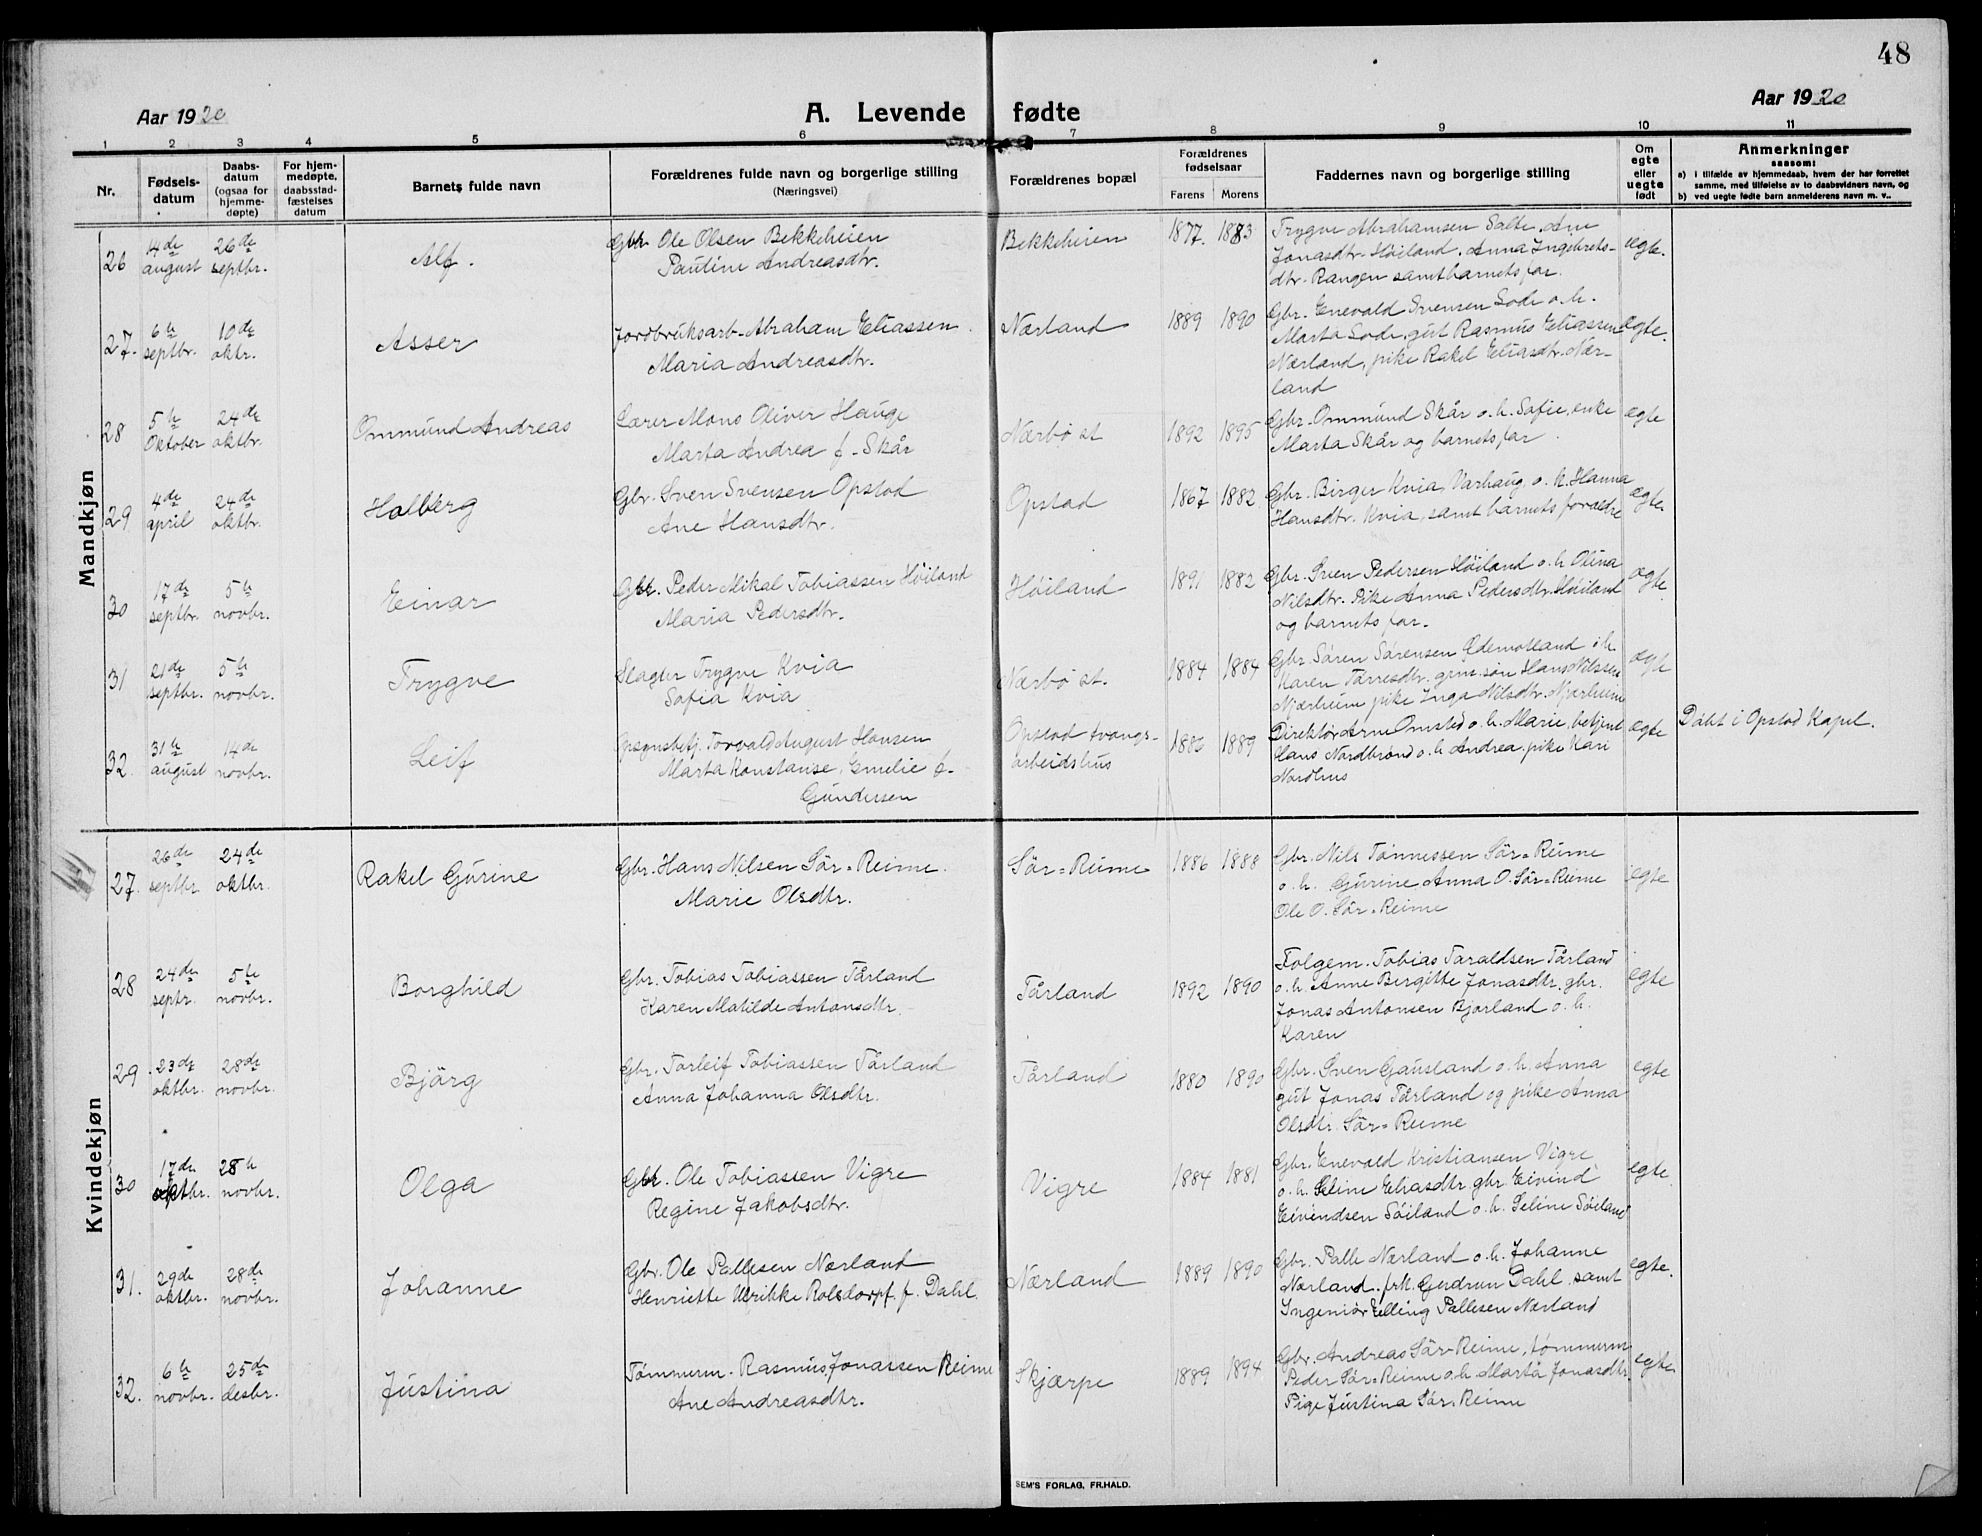 48
Aar 1920
A. Levende fødte
Aar 1920
1 2 3 4 5 6 7 8 9 10 11
Nr.
Fødsels-
datum
Daabs-
datum
(ogsaa for
hjemme-
døpte)
For hjem-
medøpte,
daabsstad-
fæstelses
datum
Barnets fulde navn
Forældrenes fulde navn og borgerlige stilling
(Næringsvei)
Forældrenes bopæl
Forældrenes
fødselsaar
Farens Morens
Faddernes navn og borgerlige stilling
Om
egte
eller
uegte
født
Anmerkninger
saasom:
a) i tilfælde av hjemmedaab, hvem der har forrettet
samme, med tilføielse av to daabsvidners navn, og
b) ved uegte fødte barn anmelderens navn m. v..
Mandkjøn
26
4de
august
26de
septbr.
Alf.
Gbr. Ole Olsen Bekkeheien
Pauline Andreasdtr.
Bekkeheien
1877. 1883
Trygve Abrahamsen Salte, Ane
Jonasdtr. Høiland, Anna Ingebrets-
dtr. Rangen samt barnets far.
egte.
27.
6te
septbr.
10de
oktr.
Asser
Jordbruksarb. Abraham Eliassen
Maria Andreasdtr.
Nærland
1889 1890
Gbr. Enevald Svensen Lode o. h.
Marta Lode, gut Rasmus Eliassen
Nærland, pike Rakel Eliasdtr. Nær-
land
egte.
28
5te
Oktober
24de
oktbr.
Ommund Andreas
Lærer Mons Oliver Hauge
Marta Andrea f. Skår
Nærbø st
1892 1895
Gbr. Ommund Skår o. h. Sofie, enke
Marta Skår og barnets far.
egte
29
4de
april
24de
oktbr.
Halberg
Gbr. Sven Svensen Opstad
Ane Hansdtr.
Opstad
1867 1882
Gbr. Birger Kvia, Varhaug o. h. Hanna
Hansdtr. Kvia, samt barnets forældre
egte.
30
17de
septbr.
5te
novbr.
Einar
Gbr. Peder Mikal Tobiassen Høiland
Maria Pedersdtr.
Høiland
1891 1882
Gbr. Sven Pedersen Høiland o. h. Olina
Nilsdtr. Pike Anna Pedersdtr. Høiland
og barnets far.
egte
31
21de
septbr.
5te
novbr.
Trygve
Slagter Trygve Kvia
Sofia Kvia
Nærbø st.
1884 1884
Gbr. Søren Sørensen Ødemotland o. h.
Karen Tørresdtr. grm. søn Hans Nilssen
Njærheim pike Inga Nilsdtr. Njærheim
egte
32.
31te
august
14de
novbr.
Leif
Opsynsbetj. Torvald August Hansen
Marta Konstanse, Emelie f.
Gundersen
Opstad tvangs-
arbeidshus
1889
Direktør Arne Omsted o. h. Marie, betjent
Hans Nordbrønd o. h. Andrea. pike Kari
Nordhus
egte
Døbt i Opstad Kapel.
Kvindekjøn
27.
26de
septbr.
24de
oktbr.
Rakel Gurine
Gbr. Hans Nilsen Sör=Reime.
Marie Olsdtr.
Sör=Reime
1886 1888
Gbr. Nils Tønnessen Sör=Reime
o. h. Gurine Anna O. Sör=Reime
Ole O. Sör=Reime
egte
28
24de
septr.
5te
novbr.
Borghild
Gbr. Tobias Tobiassen Tårland
Karen Matilde Antonsdtr.
Tårland
1892 1890
Folgem. Tobias Taraldsen Tårland
o. h. Anne Birgitte Jonasdtr. gbr.
Jonas Antonsen Bjorland o. h.
Karen
egte
29
23de
oktbr.
28de
novbr.
Bjårg
Gbr. Torleif Tobiassen Tårland
Anna Johanna Olsdtr.
Tårland
1880 1890
Gbr. Sven Gausland o. h. Anna
gut Jonas Tårland og pike Anna
Olsdtr. Sör=Reime
egte
30
17de
oktbr.
28de
novbr.
Olga
Gbr. Ole Tobiassen Vigre
Regine Jakobsdtr.
Vigre
1884 1881
Gbr. Enevald Kristiansen Vigre
o. h. Seline Eliasdtr gbr. Eivind
Eivindsen Søiland o. h. Seline Søiland
egte
31.
29de
oktbr.
28de
novbr.
Johanne
Gbr. Ole Pallesen Nærland
Henriette Ulrikke Rolsdorpf f. Dahl.
Nærland
1889 1890
Gbr. Palle Nærland o. h. Johanne
Nærland. frk. Gudrun Dahl, samt
Ingeniør Elling Pallesen Nærland
egte.
32.
6te
novbr.
25de
desbr.
Justina
Tømmerm. Rasmus Jonassen Reime
Ane Andreasdtr.
Skjærpe
1889 1894
Gbr. Andreas Sör=Reime, tømmerm
Peder Sör=Reime o. h. Marta Jonasdtr.
Pige Justina Sör=Reime
egte
SEM'S FORLAG, FR.HALD.